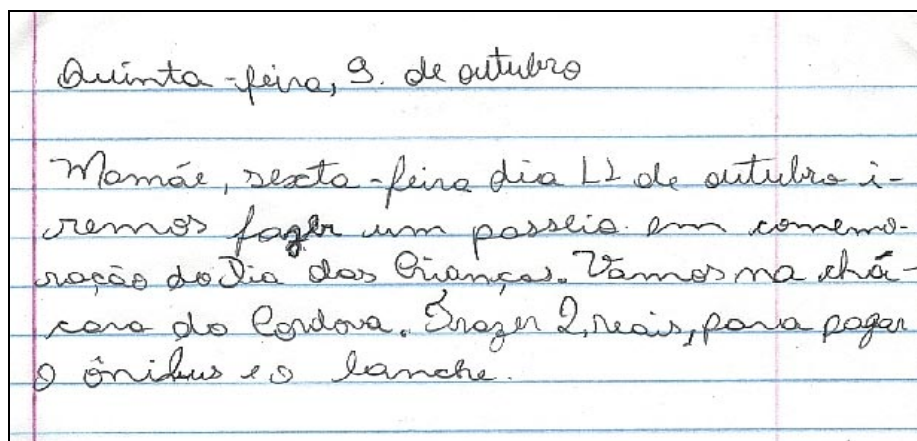 Quinta-feira, 9. de outubro
Mamãe, sexta-feira dia 11 de outubro i-
remos fazer um passeio em comemo-
ração do Dia das Crianças. Vamos na chá-
cara do Cordova. Trazer 2, reais, para pagar
o ônibus e o lanche.